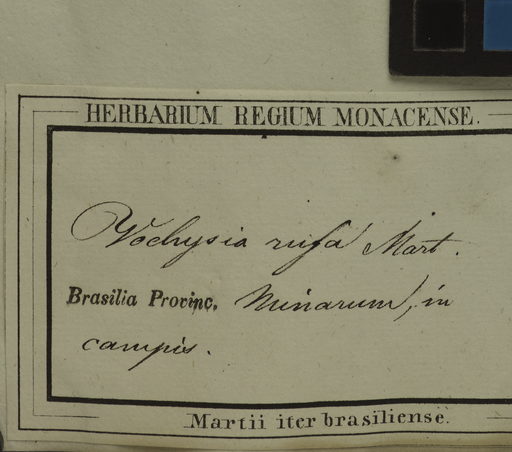 HERBARIUM REGIUM MONACENSE.
Vochysia rufa Mart.
Brasilia Provinc. Minarum, in
campis.
Martii iter brasiliense.